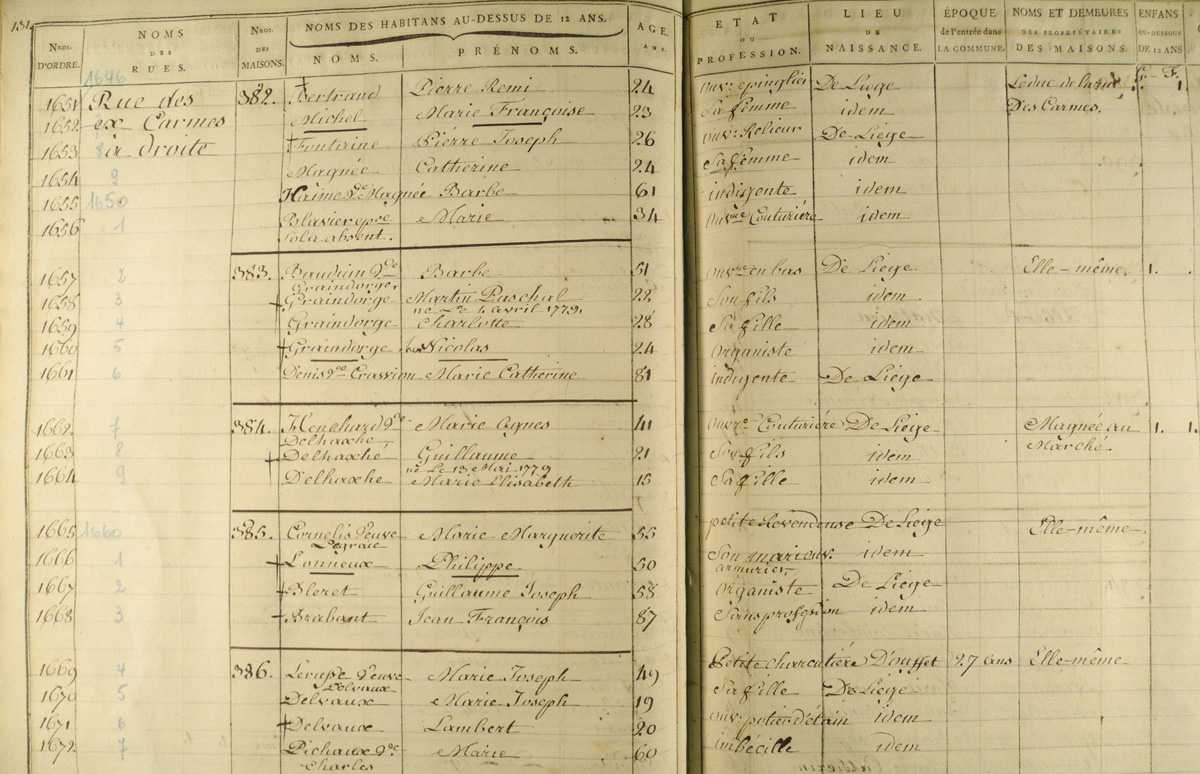 131.
NROS. D'ORDRE.
NOMS DES RUES.
NROS. DES MAISONS.
NOMS DES HABITANS AU-DESSUS DE 12 ANS.
NOMS.
PRÉNOMS.
AGE. ANS.
ETAT OU PROFESSION.
LIEU DE NAISSANCE.
ÉPOQUE de l'entrée dans LA COMMUNE.
NOMS ET DEMEURES DES PROPRIÉTAIRES DES MAISONS.
ENFANS AU-DESSOUS DE 12 ANS
G. - F.
1646
1651 Rue des 382. Bertrand Pierre Remi 24 ouvr. épinglier De Liège Leduc de la rue 1.
1652 ex Carmes Michel Marie Françoise 23 Sa femme idem Des Carmes.
1653 8 à droite Fontaine Pierre Joseph 26 ouvr. Relieur De Liège
1654 9 Magnée Catherine 24 Sa femme idem
1655 1650 Haime Vve Magnée Barbe 61 indigente idem
1656 1 Blavier Marie 34 ouvre Couturière idem
absent.
1657 2 383. Bauduin Vve Barbe 51 ouvre en bas De Liège Elle-même. 1.
Graindorge
1658 3 Graindorge Martin Paschal 22 Son fils idem
né Le 4 avril 1779.
1659 4 Graindorge Charlotte 28 Sa fille idem
1660 5 Graindorge Nicolas 24 organiste idem
1661 6 Denis Vve Crassion Marie Catherine 81 indigente De Liège
1662 7 384. Henchard Vve Marie Agnes 41 ouvre Couturière De Liège Magnée au 1. 1.
Delhaxhe
1663 8 Delhaxhe Guillaume 21 Son fils idem Marché.
né Le 13 Mai 1779
1664 9 Delhaxhe Marie Elisabeth 15 Sa fille idem
1665 1660 385. Cornelis Veuve Marie Marguerite 55 petite Revendeuse De Liège Elle-même
1666 1 Lonneux Philippe 50 idem
armurier
1667 2 Bleret Guillaume Joseph 58 organiste De Liège
1668 3 Brabant Jean François 87 Sans profession idem
1669 4 386. Veuve Marie Joseph 49 Petite charcutière D'ouffet 27 ans Elle-même
Delvaux
1670 5 Delvaux Marie Joseph 19 Sa fille De Liège
1671 6 Delvaux Lambert 20 ouvr. potier d'étain idem
1672 7 Pichaux Vve Marie 60 imbécille idem
Charles